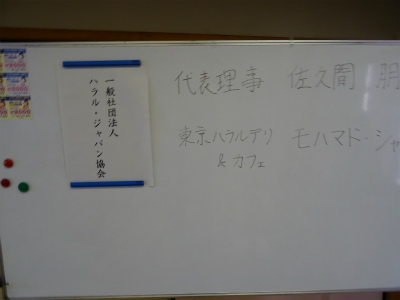 一般社団法人
ハラル・ジャパン協会
代表理事 佐久間 朋
東京ハラルデリ
& カフェ
モハマド・シャ